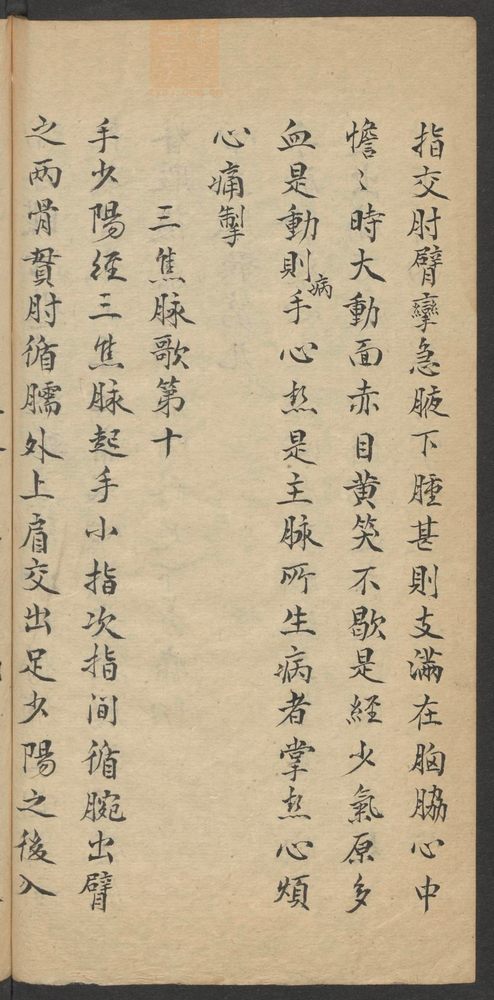 指交肘臂攣急腋下腫甚則支滿在胸脇心中
憺〻時大動面赤目黄笑不歇是經少氣原多
血是動則病手心热是主脉所生病者掌热心煩
心痛掣
三焦脉歌第十
手少陽经三焦脉起手小指次指间循腕出臂
之两骨貫肘循臑外上肩交出足少陽之後入